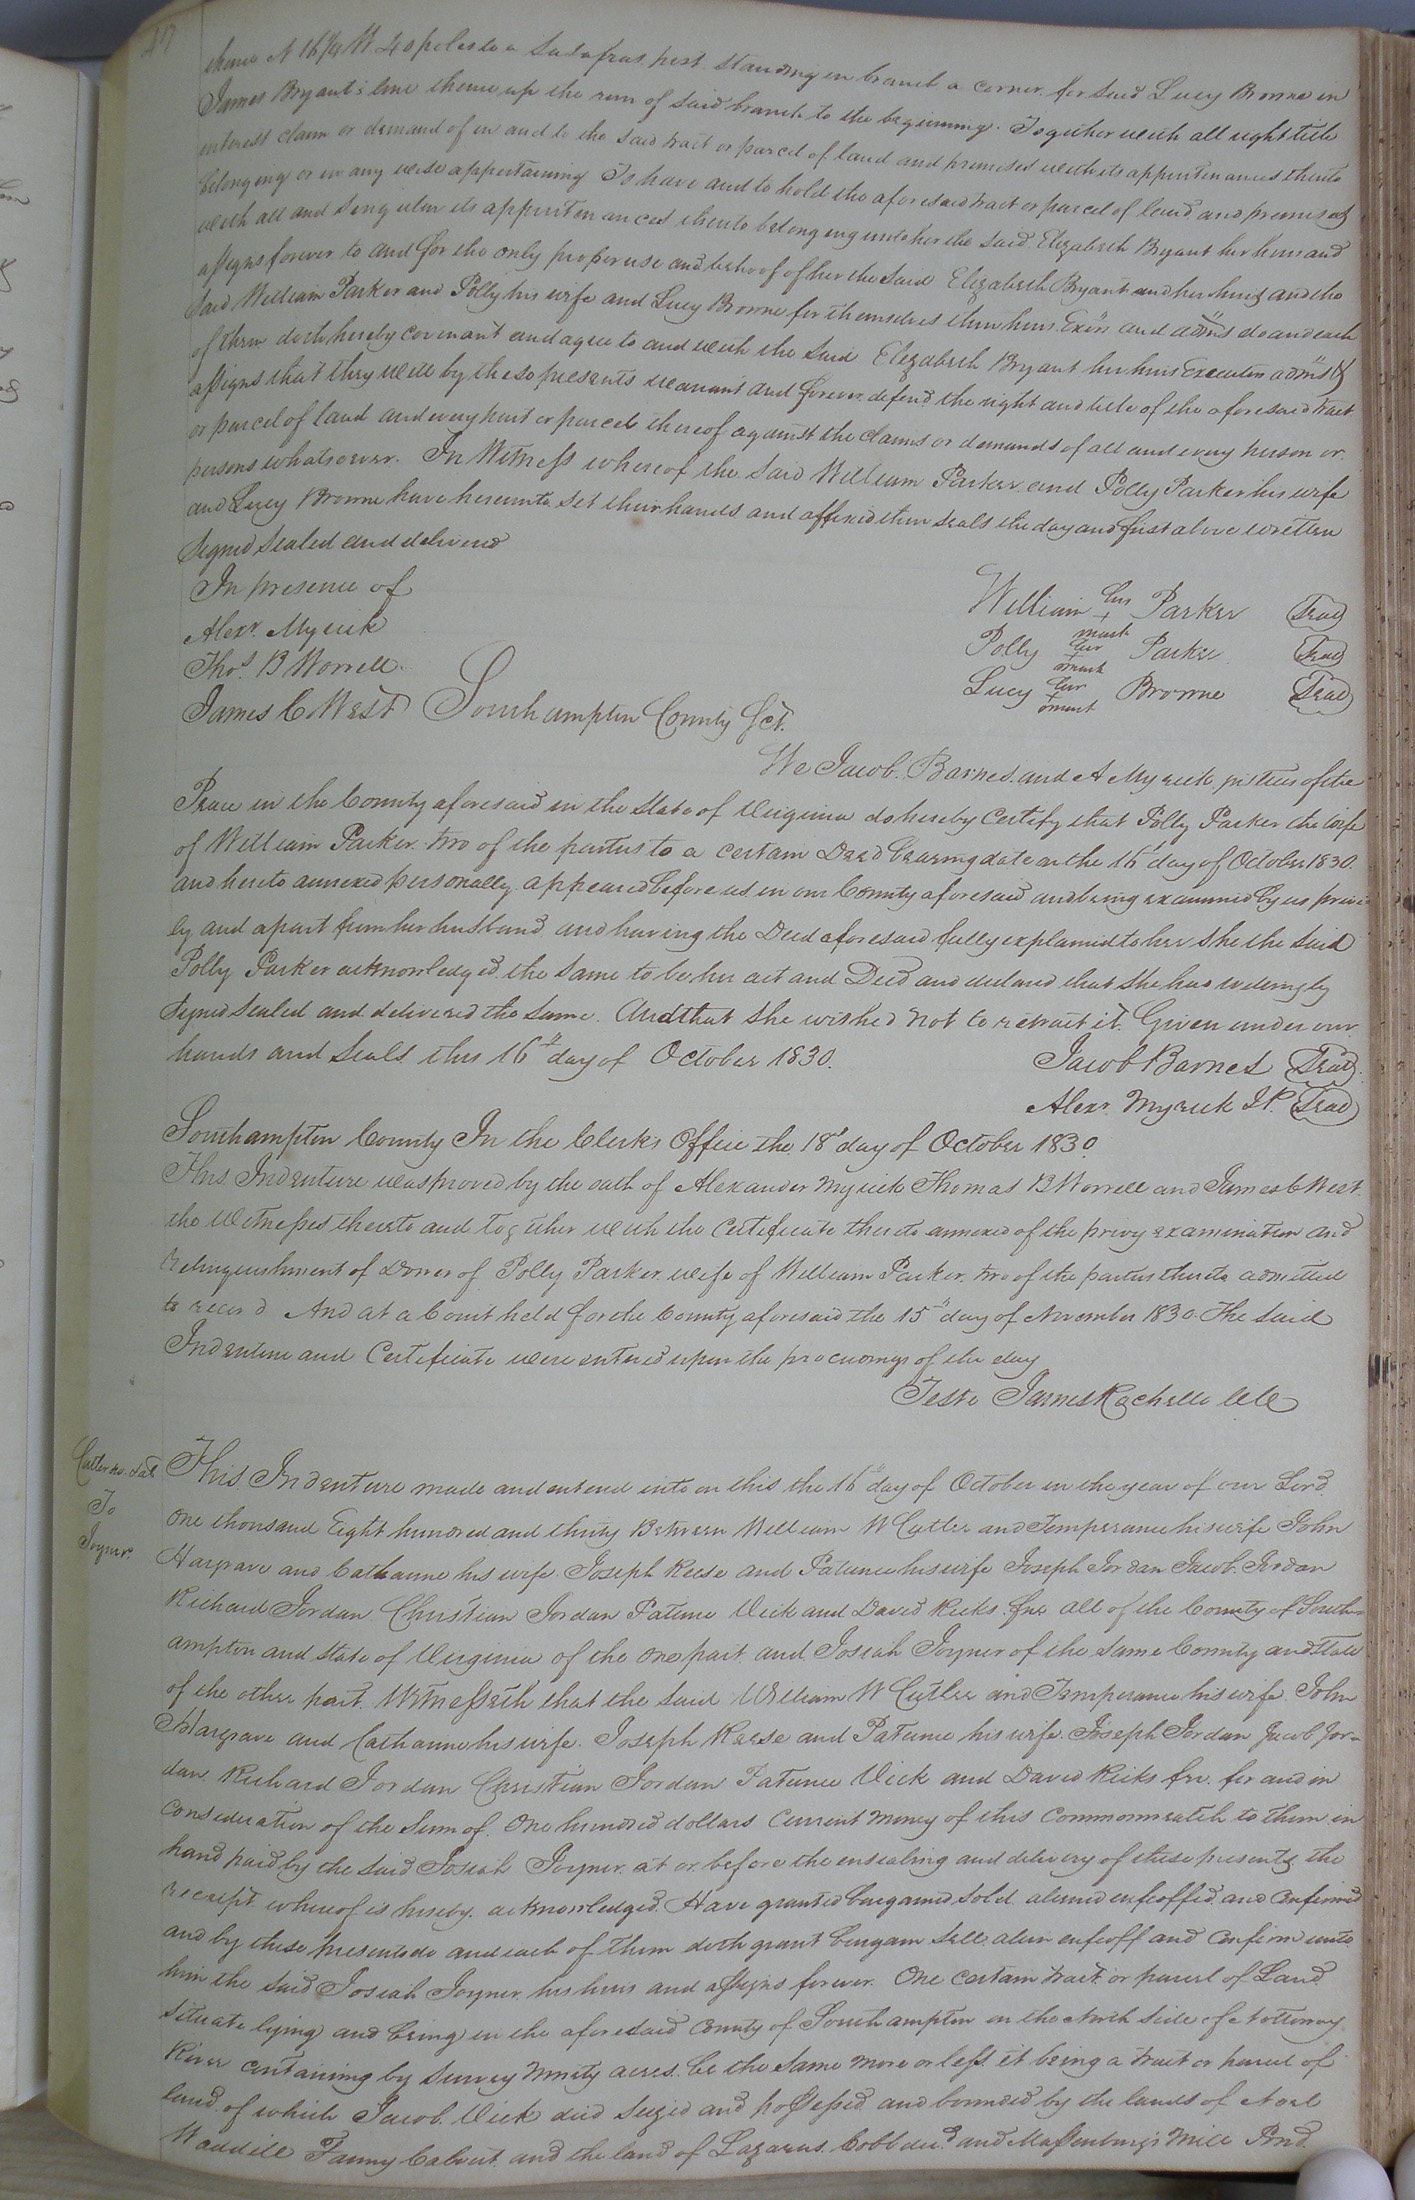 thence N 16¼ W 40 poles to a Sasafras post standing in branch a corner for said Lucy Browne in
James Bryant's line thence up the run of said branch to the beginning. Together with all right title
interest claim or demand of in and to the said tract or parcel of land and premises with its appurtenances thereto
belonging or in any wise appertaining To have and to hold the aforesaid tract or parcel of land and premises
with all and singular its appurtenances thereto belonging unto her the said Elizabeth Bryant her heirs and
assigns forever to and for the only proper use and behoof of her the said Elizabeth Bryant and her heirs and the
said William Parker and Polly his wife and Lucy Browne for themselves their heirs Exōrs and adm̄rs do and each
of them doth hereby covenant and agree to and with the said Elizabeth Bryant her heirs Executors adm̄rs &
assigns that they will by these presents warrant and forever defend the right and title of the aforesaid tract
or parcel of land and every part or parcel thereof against the claims or demands of all and every person or
persons whatsoever. In Witness whereof the said William Parker and Polly Parker his wife
and Lucy Browne have hereunto set their hands and affixed their seals the day and first above written
Signed Sealed and delivered
In presence of
Alexr. Myrick
Thos. B Worrell
James C West
William his + mark Parker Seal
Polly her + mark Parker Seal
Lucy her + mark Browne Seal
Southampton County Sct.
We Jacob Barnes and A Myrick justices of the
Peace in the County aforesaid in the State of Virginia do hereby Certify that Polly Parker the wife
of William Parker two of the parties to a certain Deed bearing date on the 16 day of October 1830.
and hereto annexed personally appeared before us in our County aforesaid and being examined by us privi
ly and apart from her husband and having the Deed aforesaid fully explained to her she the said
Polly Parker acknowledged the same to be her act and Deed and declared that she had willingly
Signed Sealed and delivered the same. And that she wished not to retract it. Given under our
hands and Seals this 16th day of October 1830.
Jacob Barnes Seal
Alexr. Myrick JP. Seal
Southampton County In the Clerks Office the 18th day of October 1830.
This Indenture was proved by the oath of Alexander Myrick Thomas B Worrell and James C West
the Witnesses thereto and together with the Certificate thereto annexed of the privy examination and
relinquishment of Dower of Polly Parker wife of William Parker, two of the parties thereto admitted
to record And at a Court held for the County aforesaid the 15th day of November 1830 The said
Indenture and Certificate were entered upon the proceedings of the day
Teste James Rochelle Clk
Cutler &c
To
Joyner.
This Indenture made and entered into on this the 16th day of October in the year of our Lord
One thousand Eight hundred and thirty Between William W Cutler and Temperance his wife John
Hargrave and Cathanne his wife Joseph Reese and Patience his wife Joseph Jordan Jacob Jordan
Richard Jordan Christian Jordan Patience Vick and David Ricks Snr all of the County of South-
ampton and State of Virginia of the one part and Josiah Joyner of the same County and State
of the other part. Witnesseth that the said William W Cutler and Temperance his wife John
Hargrave and Cathanne his wife. Joseph Reese and Patience his wife. Joseph Jordan Jacob Jor-
dan Richard Jordan Christian Jordan Patience Vick and David Ricks Snr. for and in
Consideration of the Sum of One hundred dollars Current money of this Commonwealth to them in
hand paid by the said Josiah Joyner at or before the ensealing and delivery of these presents the
receipt whereof is hereby acknowledged. Have granted bargained sold aliened enfeoffed and Confirmed
and by these presents do and each of them doth grant bargain sell alien enfeoff and Confirm unto
him the said Josiah Joyner his heirs and assigns forever. One certain tract or parcel of Land
situate lying and being in the aforesaid County of Southampton on the North side of Nottoway
River containing by Survey Ninety acres. be the same more or less it being a tract or parcel of
land of which Jacob Vick died seized and possessed and bounded by the lands of Noel
Waddill Fanny Calvert and the land of Lazarus Cobb decd. and Massenburg's Mill Pond